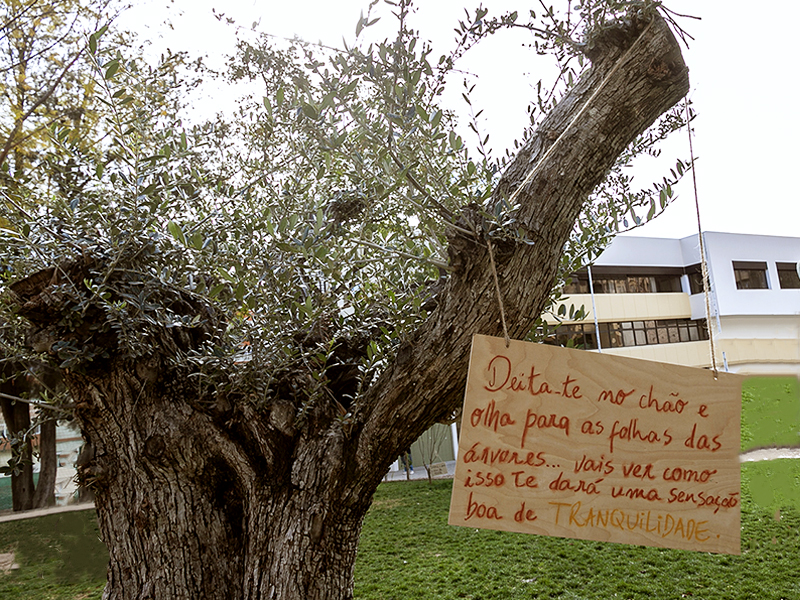 Deita-te no chão e
olha para as folhas das
árvores... vais ver como
isso te dará uma sensação
boa de TRANQUILIDADE.